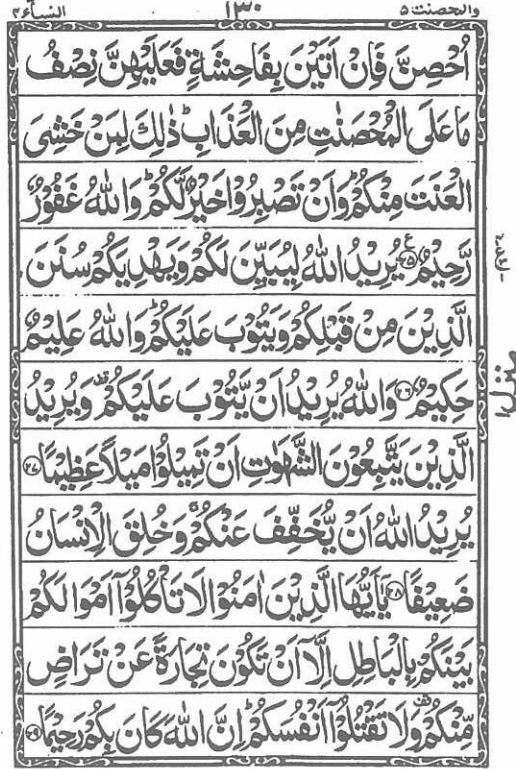 والمحصنت ۵ ۱۳۰ النسآء ۴
اُحْصِنَّ فَاِنْ اَتَيْنَ بِفَاحِشَةٍ فَعَلَيْهِنَّ نِصْفُ
مَا عَلَى الْمُحْصَنٰتِ مِنَ الْعَذَابِ ؕ ذٰلِكَ لِمَنْ خَشِىَ
الْعَنَتَ مِنْكُمْ ؕ وَاَنْ تَصْبِرُوْا خَيْرٌ لَّكُمْ ؕ وَاللّٰهُ غَفُوْرٌ
رَّحِيْمٌ ۲۵ ع يُرِيْدُ اللّٰهُ لِيُبَيِّنَ لَكُمْ وَيَهْدِيَكُمْ سُنَنَ
الَّذِيْنَ مِنْ قَبْلِكُمْ وَيَتُوْبَ عَلَيْكُمْ ؕ وَاللّٰهُ عَلِيْمٌ
حَكِيْمٌ ۲۶ وَاللّٰهُ يُرِيْدُ اَنْ يَّتُوْبَ عَلَيْكُمْ وَيُرِيْدُ
الَّذِيْنَ يَتَّبِعُوْنَ الشَّهَوٰتِ اَنْ تَمِيْلُوْا مَيْلًا عَظِيْمًا ۲۷
يُرِيْدُ اللّٰهُ اَنْ يُّخَفِّفَ عَنْكُمْ ۚ وَخُلِقَ الْاِنْسَانُ
ضَعِيْفًا ۲۸ يٰۤاَيُّهَا الَّذِيْنَ اٰمَنُوْا لَا تَاْكُلُوْۤا اَمْوَالَكُمْ
بَيْنَكُمْ بِالْبَاطِلِ اِلَّاۤ اَنْ تَكُوْنَ تِجَارَةً عَنْ تَرَاضٍ
مِّنْكُمْ وَلَا تَقْتُلُوْۤا اَنْفُسَكُمْ ؕ اِنَّ اللّٰهَ كَانَ بِكُمْ رَحِيْمًا ۲۹
منزل ۱